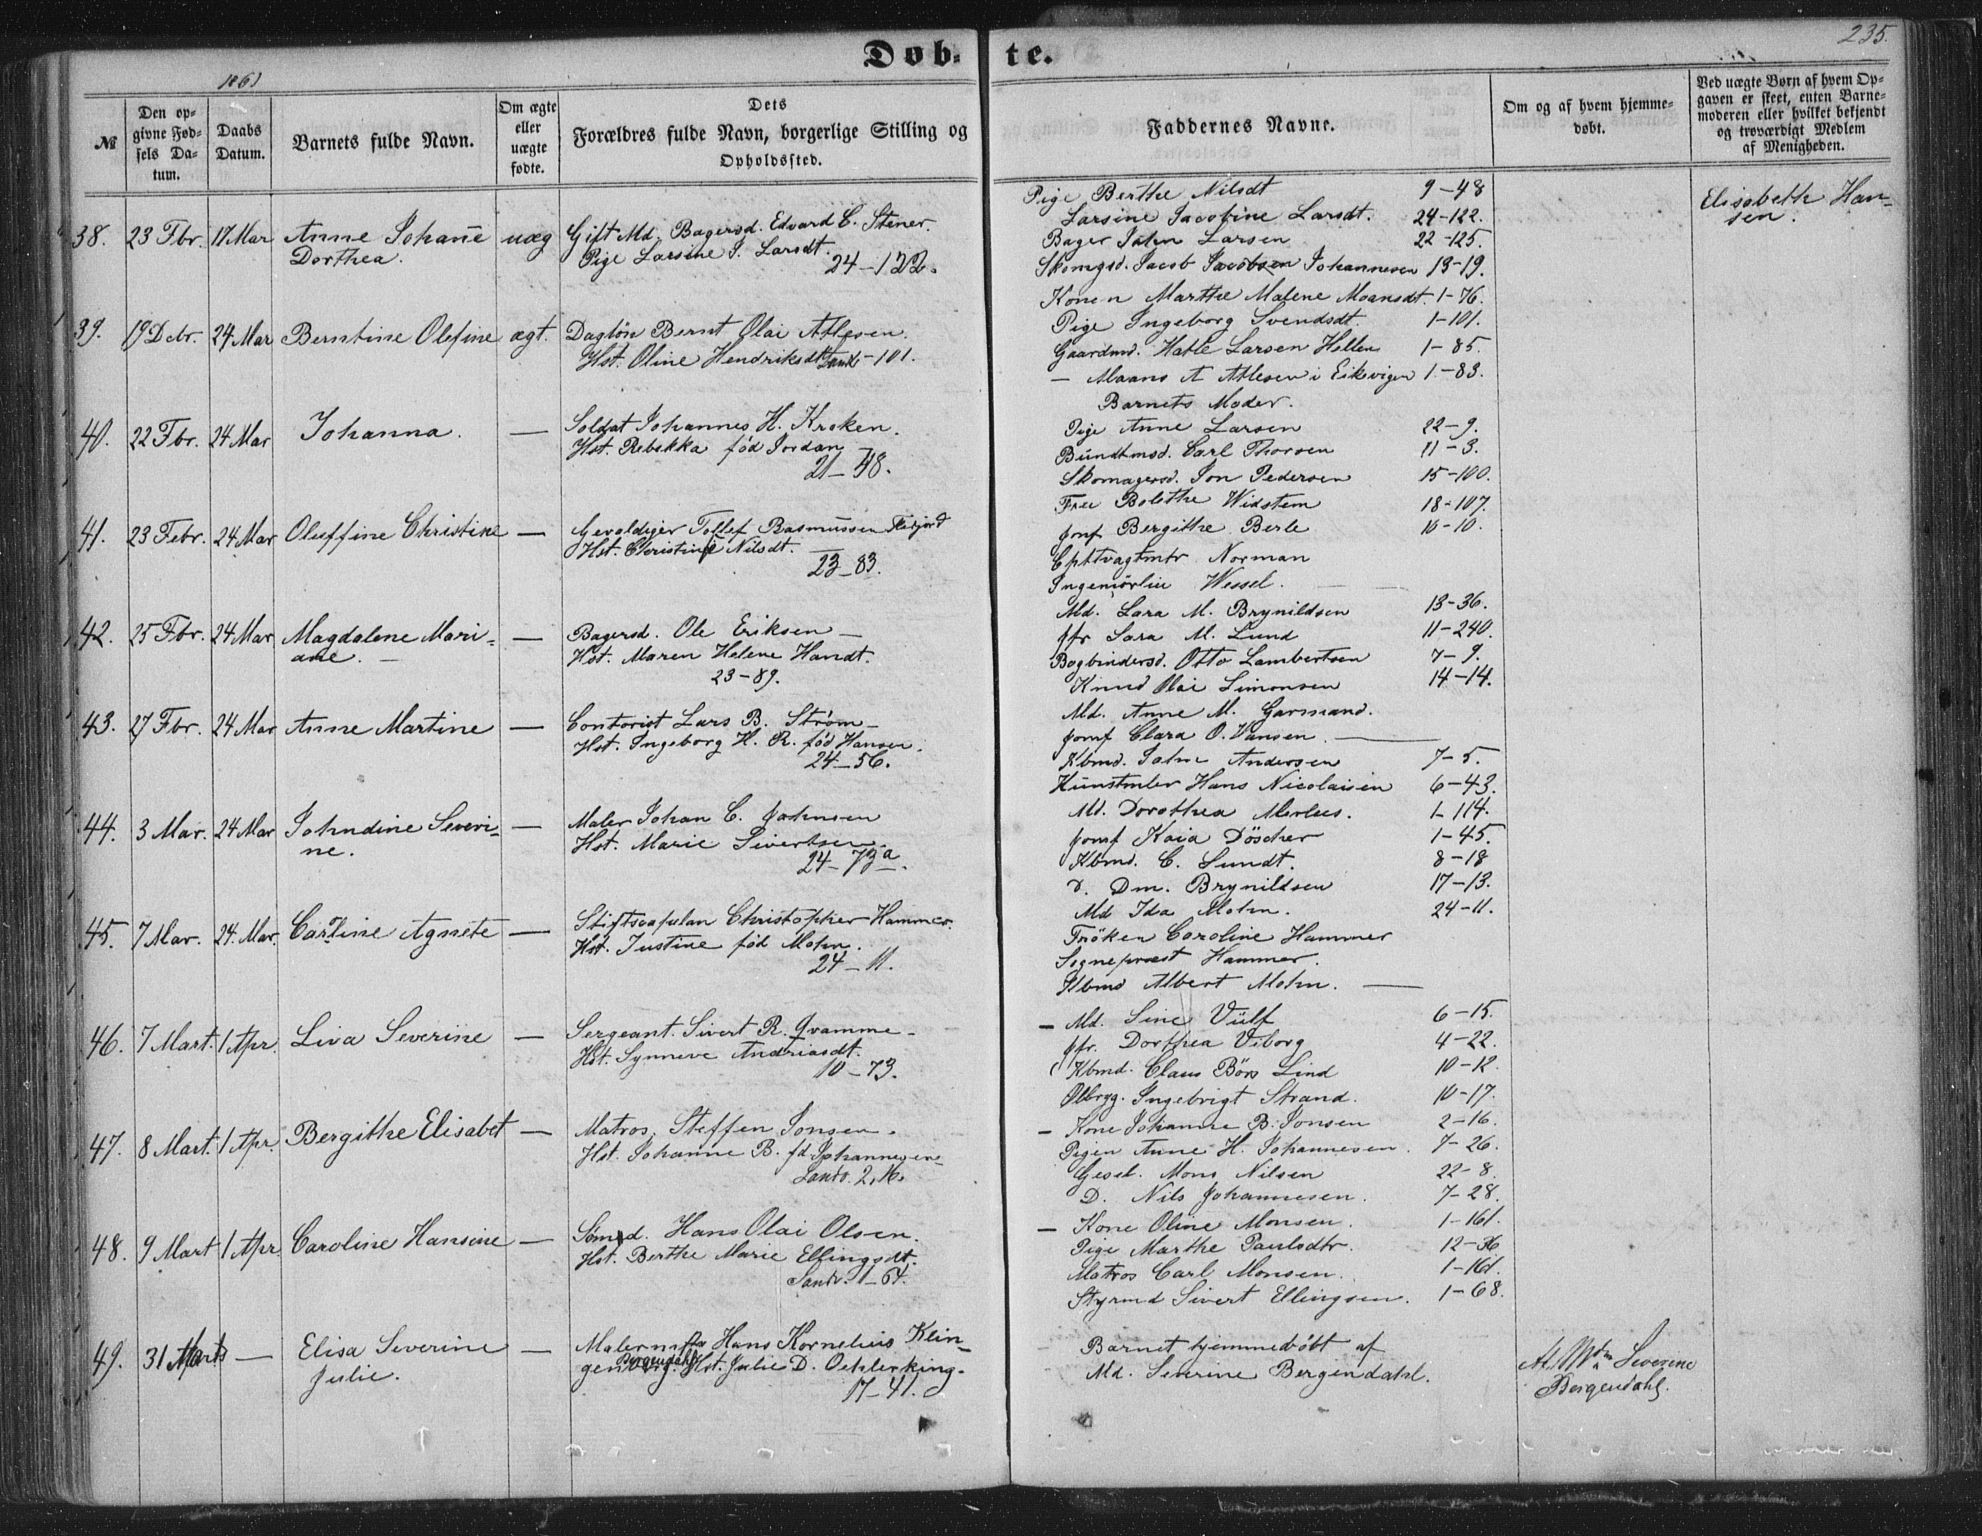 Døb- te.
235.
1861
№
Den opgivne Fødsels Datum.
Daabs Datum.
Barnets fulde Navn.
Om ægte eller uægte fødte.
Dets Forældres fulde Navn, borgerlige Stilling og Opholdssted.
Faddernes Navne.
Om og af hvem hjemmedøbt.
Ved uægte Børn af hvem Opgaven er skeet, enten Barnemoderen eller hvilket bekjendt og troværdigt Medlem af Menigheden.
38. 23 Fbr. 17 Mar Anne Johañe uæg Gift Md. Bagersd. Edvard C. Stener.
Dorthea. Pige Larsine J. Larsdt.
24-122.
Pige Berthe Nilsdt 9-48
Larsine Jacobine Larsdt. 24-122.
Bager John Larsen 22-125.
Skomgsd. Jacob Jacobsen Johannesen 13-19.
Elisabeth Hansen.
39. 19 Dcbr. 24 Mar Berntine Olefine ægt. Dagløn Bernt Olai Atlesen.
Hst. Oline Hendriksdt Sandv-101.
Konen Marthe Malene Moansdt. 1-76.
Pige Ingeborg Svendsdt. 1-101.
Gaardmd. Hatle Larsen Hellen 1-85.
— Maans A Atlesen i Eikevigen 1-83.
40. 22 Fbr. 24 Mar Johanna. — Soldat Johannes H. Kroken.
Hst. Rebekka fød Jordan
21-48.
Barnets Moder.
Pige Anne Larsen 22-9.
Bundtmsd. Carl Thorsen 11-3.
Skomagersd. Jon Pedersen 15-100.
41. 23 Febr. 24 Mar Oluffine Christine — Gevaldiger Tollef Rasmussen Flisjord
Hst. Christine Nilsdt.
23-83.
Frue Bolethe Widstem 18-107.
Jomf Bergithe Berle 10-10.
Cpttvagtmtr Norman
Ingeniørlieu Wessel.
42. 25 Fbr. 24 Mar Magdalene Mari- — Bagersd. Ole Eriksen —
ane. — Hst. Maren Helene Handt.
23-89.
Md. Lara M. Brynildsen 13-36.
Jfr Sara M. Lund 11-240.
Bogbindersd. Otto Lambertsen 7-9.
Knud Olai Simonsen 14-14.
43. 27 Fbr. 24 Mar Anne Martine — Contorist Lars B. Strøm —
Hst. Ingeborg K. R. fød Hansen.
24-56.
Md. Anne M. Garmand.
Jomf Clara O. Hansen. —
Kbmd. John Andersen 7-5.
Kunstmler Hans Nicolaisen 6-43.
44. 3 Mar. 24 Mar Johndine Severi- — Maler Johan C. Johnsen
ne. Hst. Marie Sivertsen.
24-73a.
Md. Dorothea Merlees. 1-114.
Jomf Kaia Döscher 1-45.
Kbmd. C. Sundt. 8-18
D. Dm. Brynildsen 17-13.
45. 7 Mar. 24. Mar. Caroline Agnete — Stiftscapelan Christopher Hammer.
Hst. Justine fød Mohn.
24-11.
Md Ida Mohn. 24-11.
Frøken Caroline Hammer
Sognepræst Hammer.
Kbmd Albert Mohn. —
46. 7 Mart. 1 Apr. Liva Severine — Sergeant. Sivert R. Qvamme.
Hst. Synneve Andriasdt.
10-73.
— Md. Sine Vülf 6-15.
Jfr. Dorthea Viborg 4-22.
Kbmd. Claus Börs Lind 10-12
Ølbryg. Ingebrigt Strand. 10-17.
47. 8 Mart. 1 Apr. Bergithe Elisabet — Matros. Steffen Jonsen.
Hst. Johanne B. fd Johannesen
Sandv. 2.16.
— Kone Johanne B. Jonsen 2-16.
Pigen Anne H. Johannesen. 7-26.
Gesel. Mons Nilsen 22-8.
D. Nils Johannesen. 7-28.
48. 9 Mart 1 Apr. Caroline Hansine — Sømd. Hans Olai Olsen.
Hst. Berthe Marie Ellingsdt.
Sandv. 1-64.
— Kone Oline Monsen. 1-161.
Pige Marthe Paulsdtr. 12-36
Matros Carl Monsen. 1-161.
Styrmd Sivert Ellingsen. 1-68.
49. 31 Marts — Elisa Severine — Malerm Hans Kornelius Klin-
Julie. genberg. Bergendahl Hst. Julie D. Oehlerking.
17-41.
Barnet hjemmedøbt af
Md. Severine Bergendahl.
Af Mdm Severine
Bergendahl.